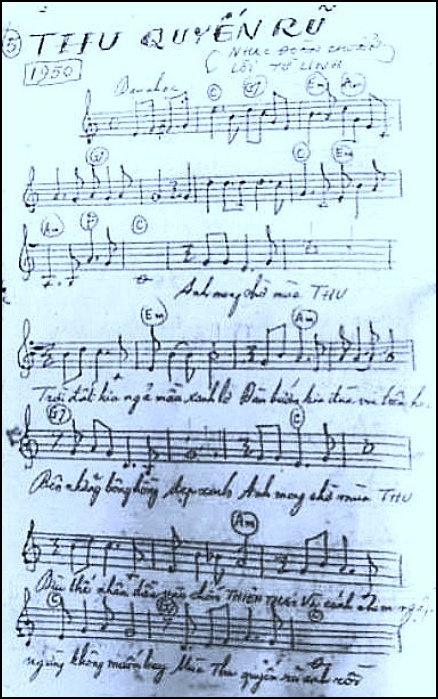 5 THU QUYẾN RŨ
1950 ( NHẠC ĐOÀN CHUẨN
LỜI TỪ LINH
Dạo nhạc
C G7 Em Am
G7 C Em
Am F C
Anh mong chờ mùa THU
Em Am
Trời đất kia ngả màu xanh lơ Đàn bướm kia đùa vui trên
G7 C
Bên những bông hồng đẹp xinh Anh mong chờ mùa THU
Am
THIÊN THAI Và cánh chim
C G7 C
ngừng không muốn bay Mùa Thu quyến rũ anh rồi